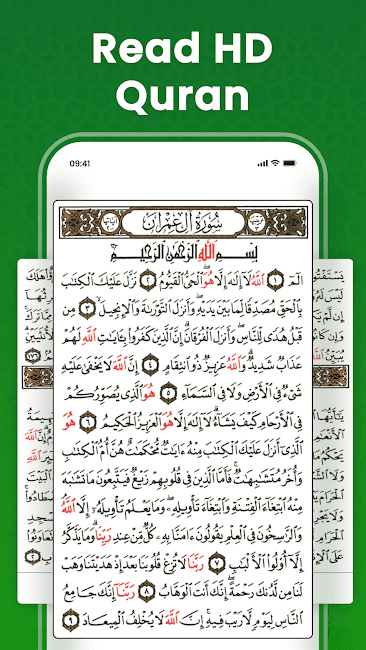 Read HD
Quran
09:41
سُورَةُ آلِ عِمْرَانَ
بِسْمِ اللَّهِ الرَّحْمَٰنِ الرَّحِيمِ
الٓمٓ ١ اللَّهُ لَا إِلَٰهَ إِلَّا هُوَ الْحَيُّ الْقَيُّومُ ٢ نَزَّلَ عَلَيْكَ الْكِتَابَ
بِالْحَقِّ مُصَدِّقًا لِمَا بَيْنَ يَدَيْهِ وَأَنْزَلَ التَّوْرَاةَ وَالْإِنْجِيلَ ٣ مِنْ
قَبْلُ هُدًى لِلنَّاسِ وَأَنْزَلَ الْفُرْقَانَ إِنَّ الَّذِينَ كَفَرُوا بِآيَاتِ اللَّهِ لَهُمْ
عَذَابٌ شَدِيدٌ وَاللَّهُ عَزِيزٌ ذُو انْتِقَامٍ ٤ إِنَّ اللَّهَ لَا يَخْفَىٰ عَلَيْهِ
شَيْءٌ فِي الْأَرْضِ وَلَا فِي السَّمَاءِ ٥ هُوَ الَّذِي يُصَوِّرُكُمْ
فِي الْأَرْحَامِ كَيْفَ يَشَاءُ لَا إِلَٰهَ إِلَّا هُوَ الْعَزِيزُ الْحَكِيمُ ٦ هُوَ
الَّذِي أَنْزَلَ عَلَيْكَ الْكِتَابَ مِنْهُ آيَاتٌ مُحْكَمَاتٌ هُنَّ أُمُّ الْكِتَابِ
وَأُخَرُ مُتَشَابِهَاتٌ فَأَمَّا الَّذِينَ فِي قُلُوبِهِمْ زَيْغٌ فَيَتَّبِعُونَ مَا تَشَابَهَ
مِنْهُ ابْتِغَاءَ الْفِتْنَةِ وَابْتِغَاءَ تَأْوِيلِهِ وَمَا يَعْلَمُ تَأْوِيلَهُ إِلَّا اللَّهُ
وَالرَّاسِخُونَ فِي الْعِلْمِ يَقُولُونَ آمَنَّا بِهِ كُلٌّ مِنْ عِنْدِ رَبِّنَا وَمَا يَذَّكَّرُ
إِلَّا أُولُو الْأَلْبَابِ ٧ رَبَّنَا لَا تُزِغْ قُلُوبَنَا بَعْدَ إِذْ هَدَيْتَنَا وَهَبْ
لَنَا مِنْ لَدُنْكَ رَحْمَةً إِنَّكَ أَنْتَ الْوَهَّابُ ٨ رَبَّنَا إِنَّكَ جَامِعُ
النَّاسِ لِيَوْمٍ لَا رَيْبَ فِيهِ إِنَّ اللَّهَ لَا يُخْلِفُ الْمِيعَادَ ٩